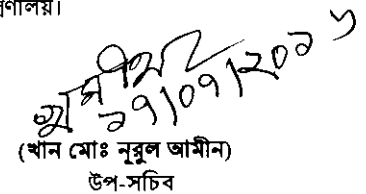 ২৭/০৭/২০১৬
(খান মোঃ নূরুল আমীন)
উপ-সচিব